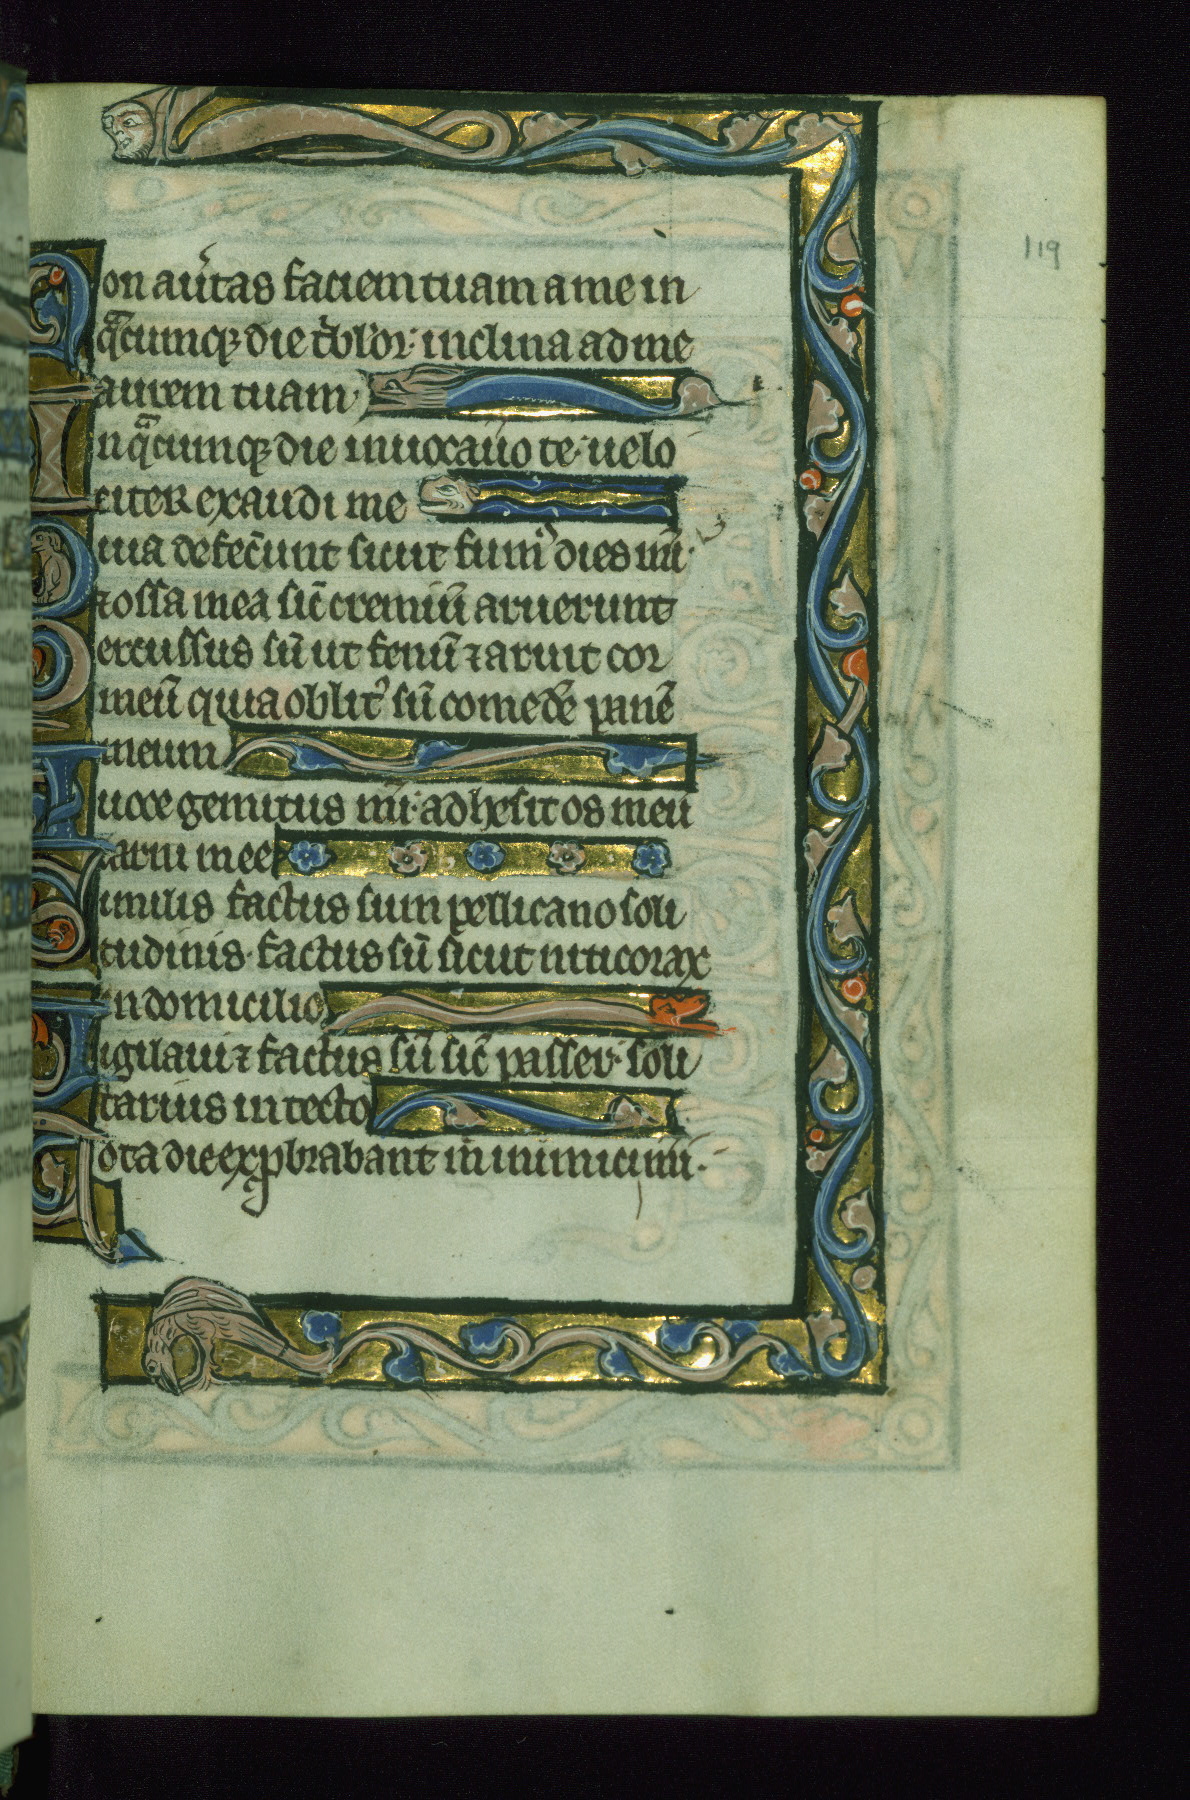 119
Non au͛tas faciem tuam a me in
qͣcumqꝫ die t͛bulor: inclina ad me
aurem tuam
In qͣcumqꝫ die inuocauo te: uelo
citer exaudi me
Quia defec̄unt sicut fumꝰ dies mi͛
⁊ ossa mea sic̄ cremiū aruerunt
Percussus sū ut fenū ⁊ aruit cor
meū quia oblitꝰ sū comede͛ panē
meum
A uoce gemitus mi͛: adhesit os meū
carni mee
Similis factus sum pellicano soli
tudinis. factus sū sicut niticorax
in domicilio
Uigilaui ⁊ factus sū sic̄ passer: soli
tarius in tecto
Tota die exꝓbrabant m̄ inimici mi͛.